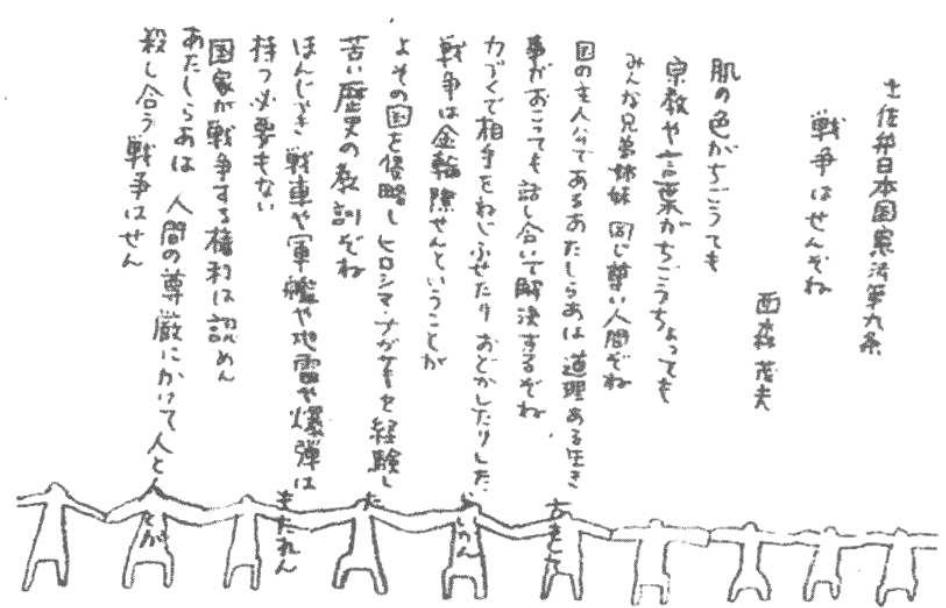 土佐弁日本国憲法第九条
戦争はせんぞね
西森茂夫
肌の色がちごうても
宗教や言葉がちごうちょっても
みんな兄弟姉妹 同じ尊い人間ぞね
国の主人公であるあたしらあは 道理ある生き方をして
事がおこっても話し合いで解決するぞね
力づくで相手をねじふせたり おどかしたりしたらいかん
戦争は金輪際せんということが
よその国を侵略し ヒロシマ・ナガサキを経験した
苦い歴史の教訓ぞね
ほんじゃき 戦車や軍艦や地雷や爆弾は もたれん
持つ必要もない
国家が戦争する権利は認めん
あたしらあは 人間の尊厳にかけて 人と人とが
殺し合う戦争はせん